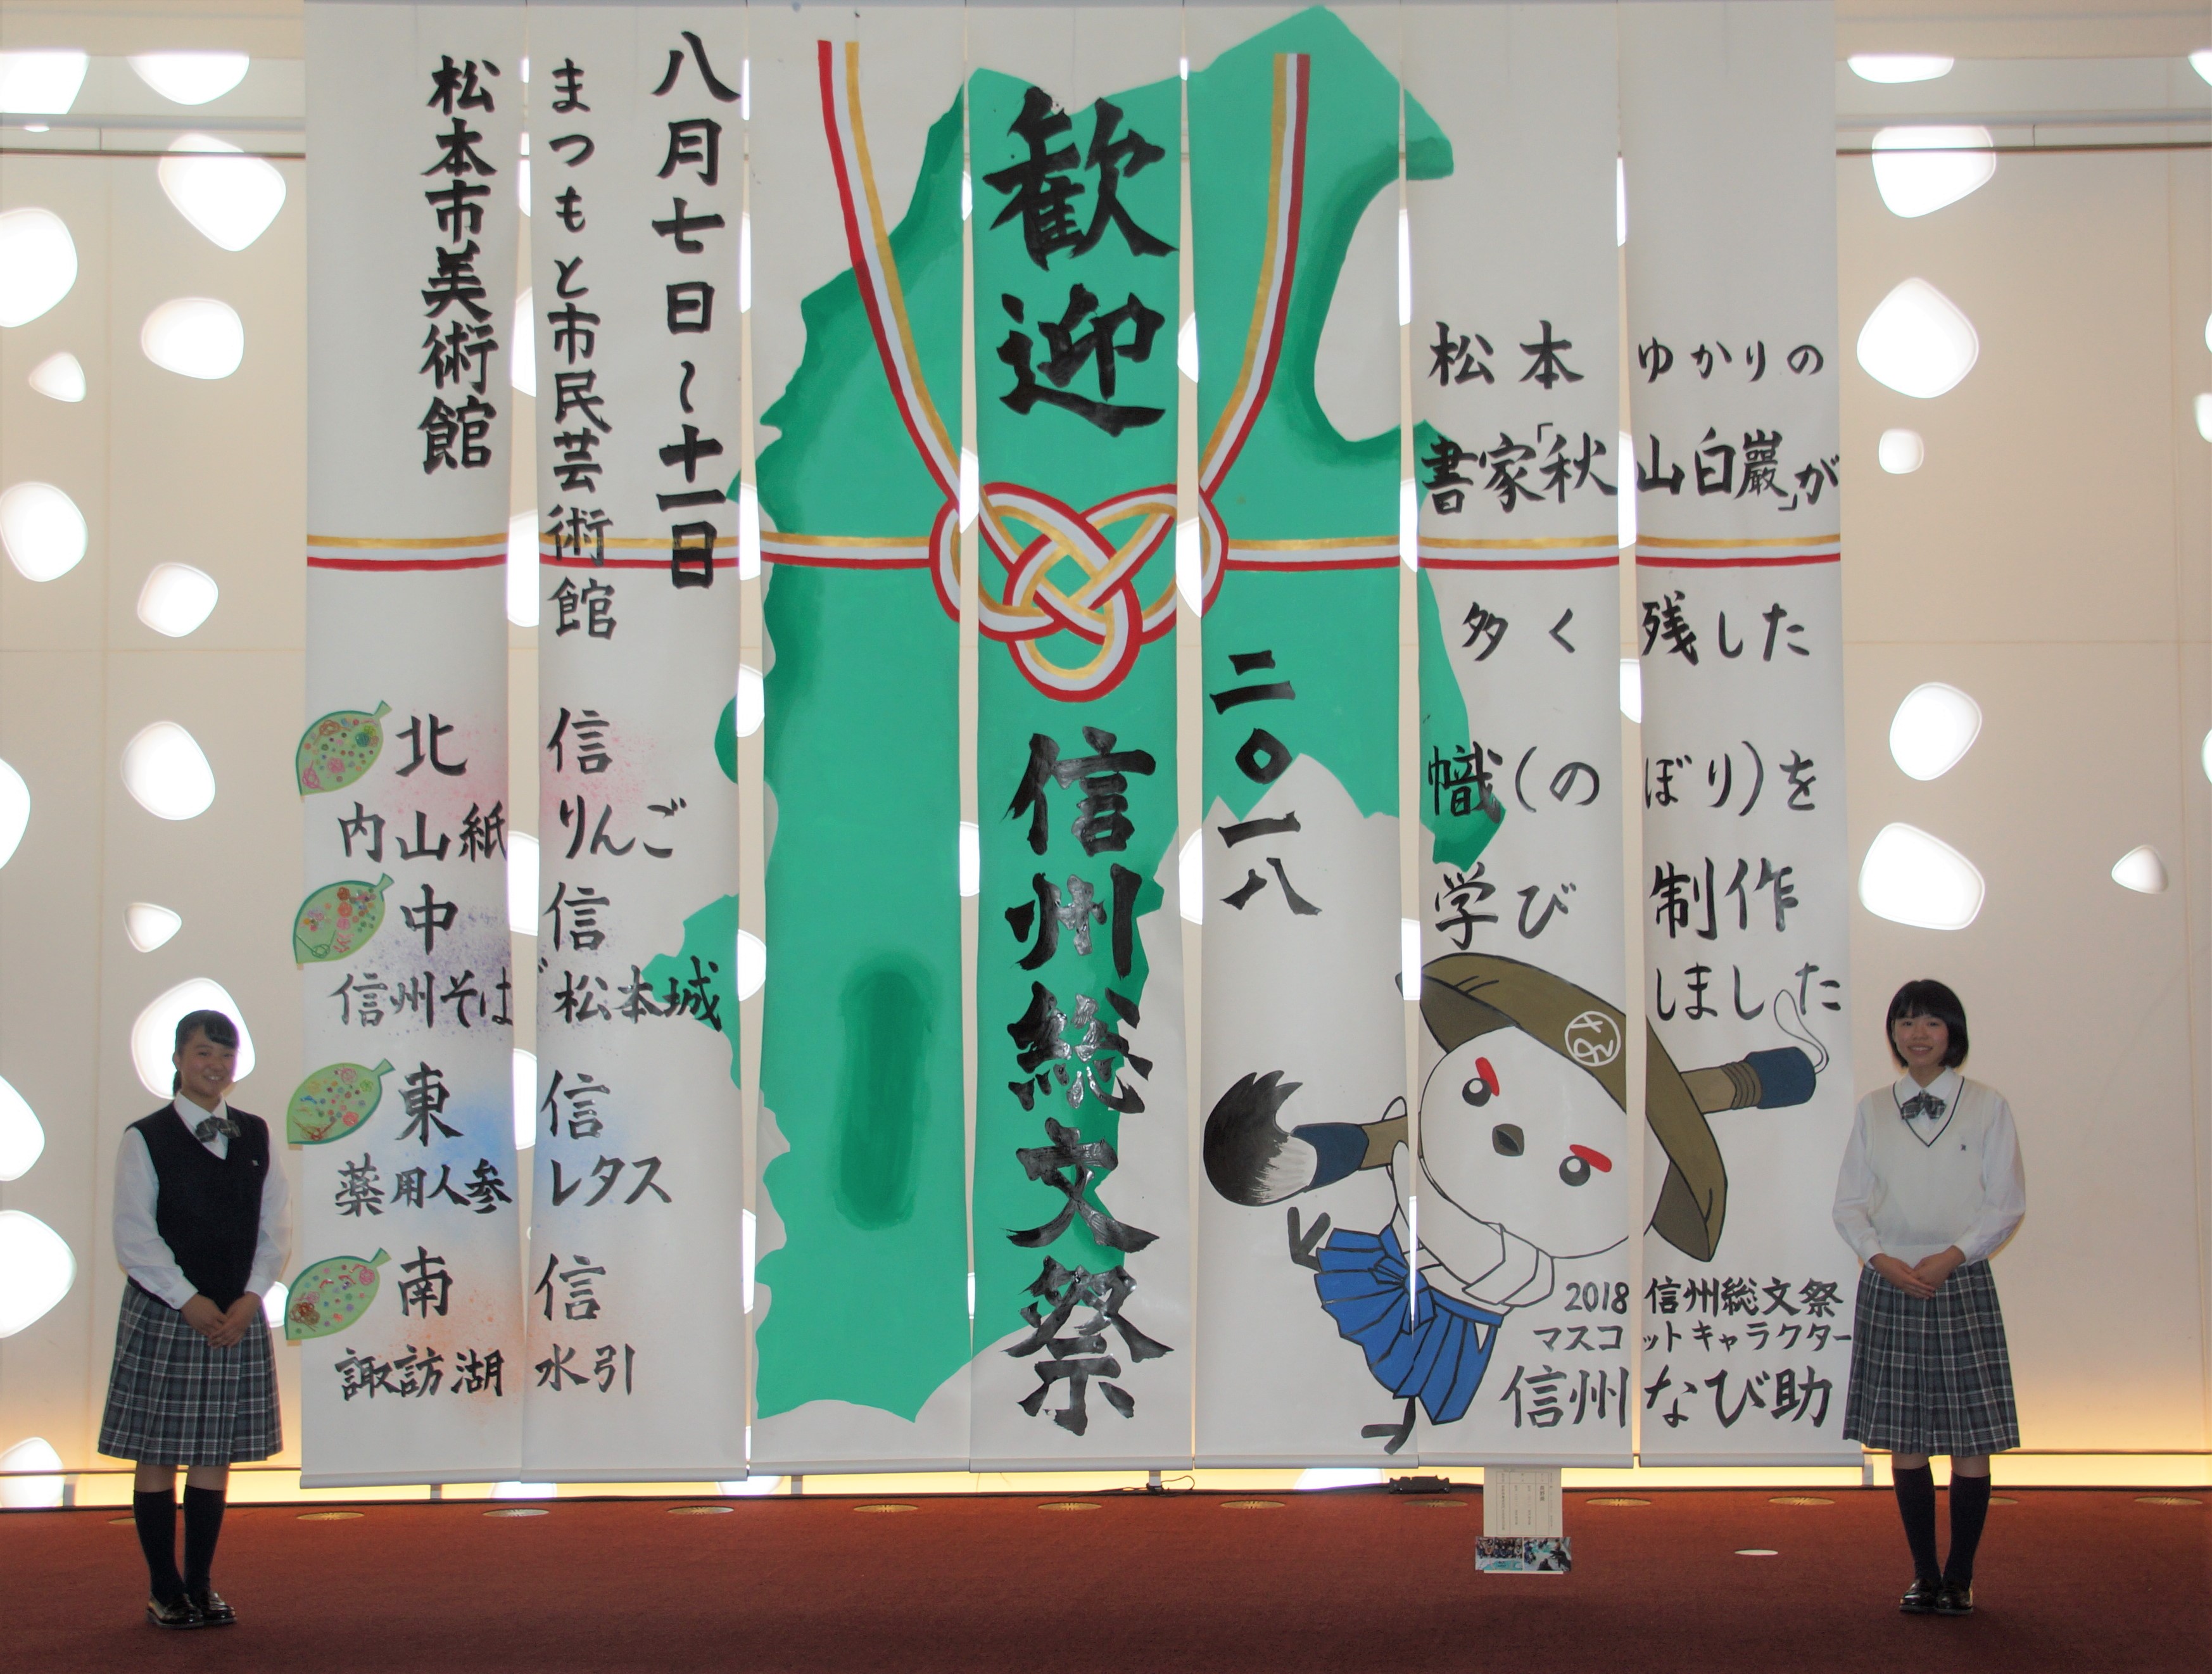 歓迎
信州総文祭
二〇一八
八月七日～十一日
まつもと市民芸術館
松本市美術館
松本ゆかりの
書家「秋山白巖」が
多く残した
幟(のぼり)を
学び制作
しました
北信
内山紙りんご
中信
信州そば松本城
東信
薬用人参レタス
南信
諏訪湖水引
2018信州総文祭
マスコットキャラクター
信州なび助